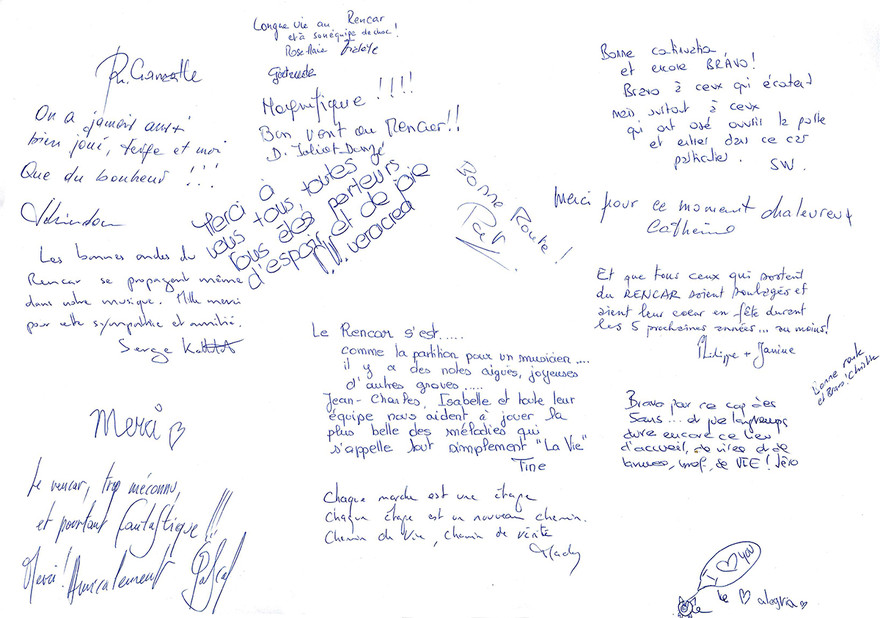 Longue vie au Rencar
et à son équipe de choc!
Gertrude
Magnifique !!!!
Bon vent au Rencar!!
D. Juliot-
On a jamais aussi
bien joué, Serge et moi
Que du bonheur !!!
Merci à
vous tous, toutes
tous êtes porteurs
d'espoir et de joie
Les bonnes ondes du
Rencar se propagent même
dans notre musique. Mille merci
pour cette sympathie et amitié.
Serge
Merci
Le rencar, trop méconnu,
et pourtant fantastique!!!
Merci! Amicalement Pascal
Bonne Route!
Le Rencar s'est.....
comme la partition pour un musicien....
il y a des notes aiguës, joyeuses
d'autres graves.....
Jean-Charles, Isabelle et toute leur
équipe nous aident à jouer la
plus belle des mélodies qui
s'appelle tout simplement "La Vie"
Tine
Chaque marche est une étape
Chaque étape est un nouveau chemin.
Chemin de Vie, Chemin de vérité
Mady
Bonne continuation
et encore BRAVO!
Bravo à ceux qui écoutent
mais surtout à ceux
qui ont osé ouvrir la porte
et entrer dans ce car
particulier. SW.
Merci pour ce moment chaleureux
Catherine
Et que tous ceux qui sortent
du RENCAR soient soulagés et
aient leur coeur en fête durant
les 5 prochaines années... au moins!
Philippe + Janine
Bonne route
et Bravo! Christine
Bravo pour ce cap des
5ans... et que longtemps
dure encore ce lieu
d'accueil, de rires et de
larmes, bref, de VIE!
I ♡ you
le ♡ alegria